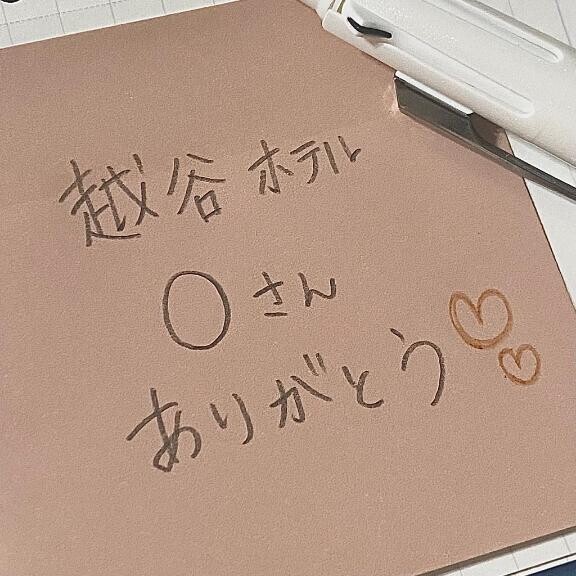 越谷 ホテル
〇さん
ありがとう♡♡